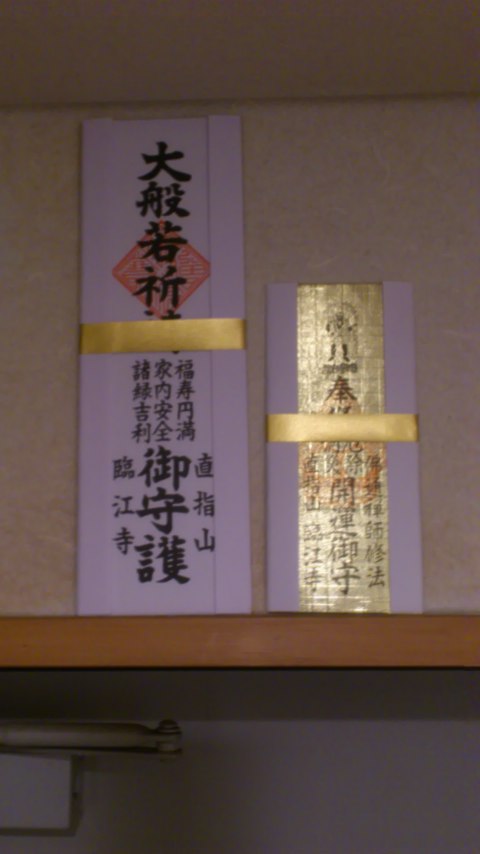 大般若祈
福寿円満
家内安全
諸縁吉利
御守護
直指山
臨江寺
奉
除
開運御守
禅師修法
直指山 臨江寺